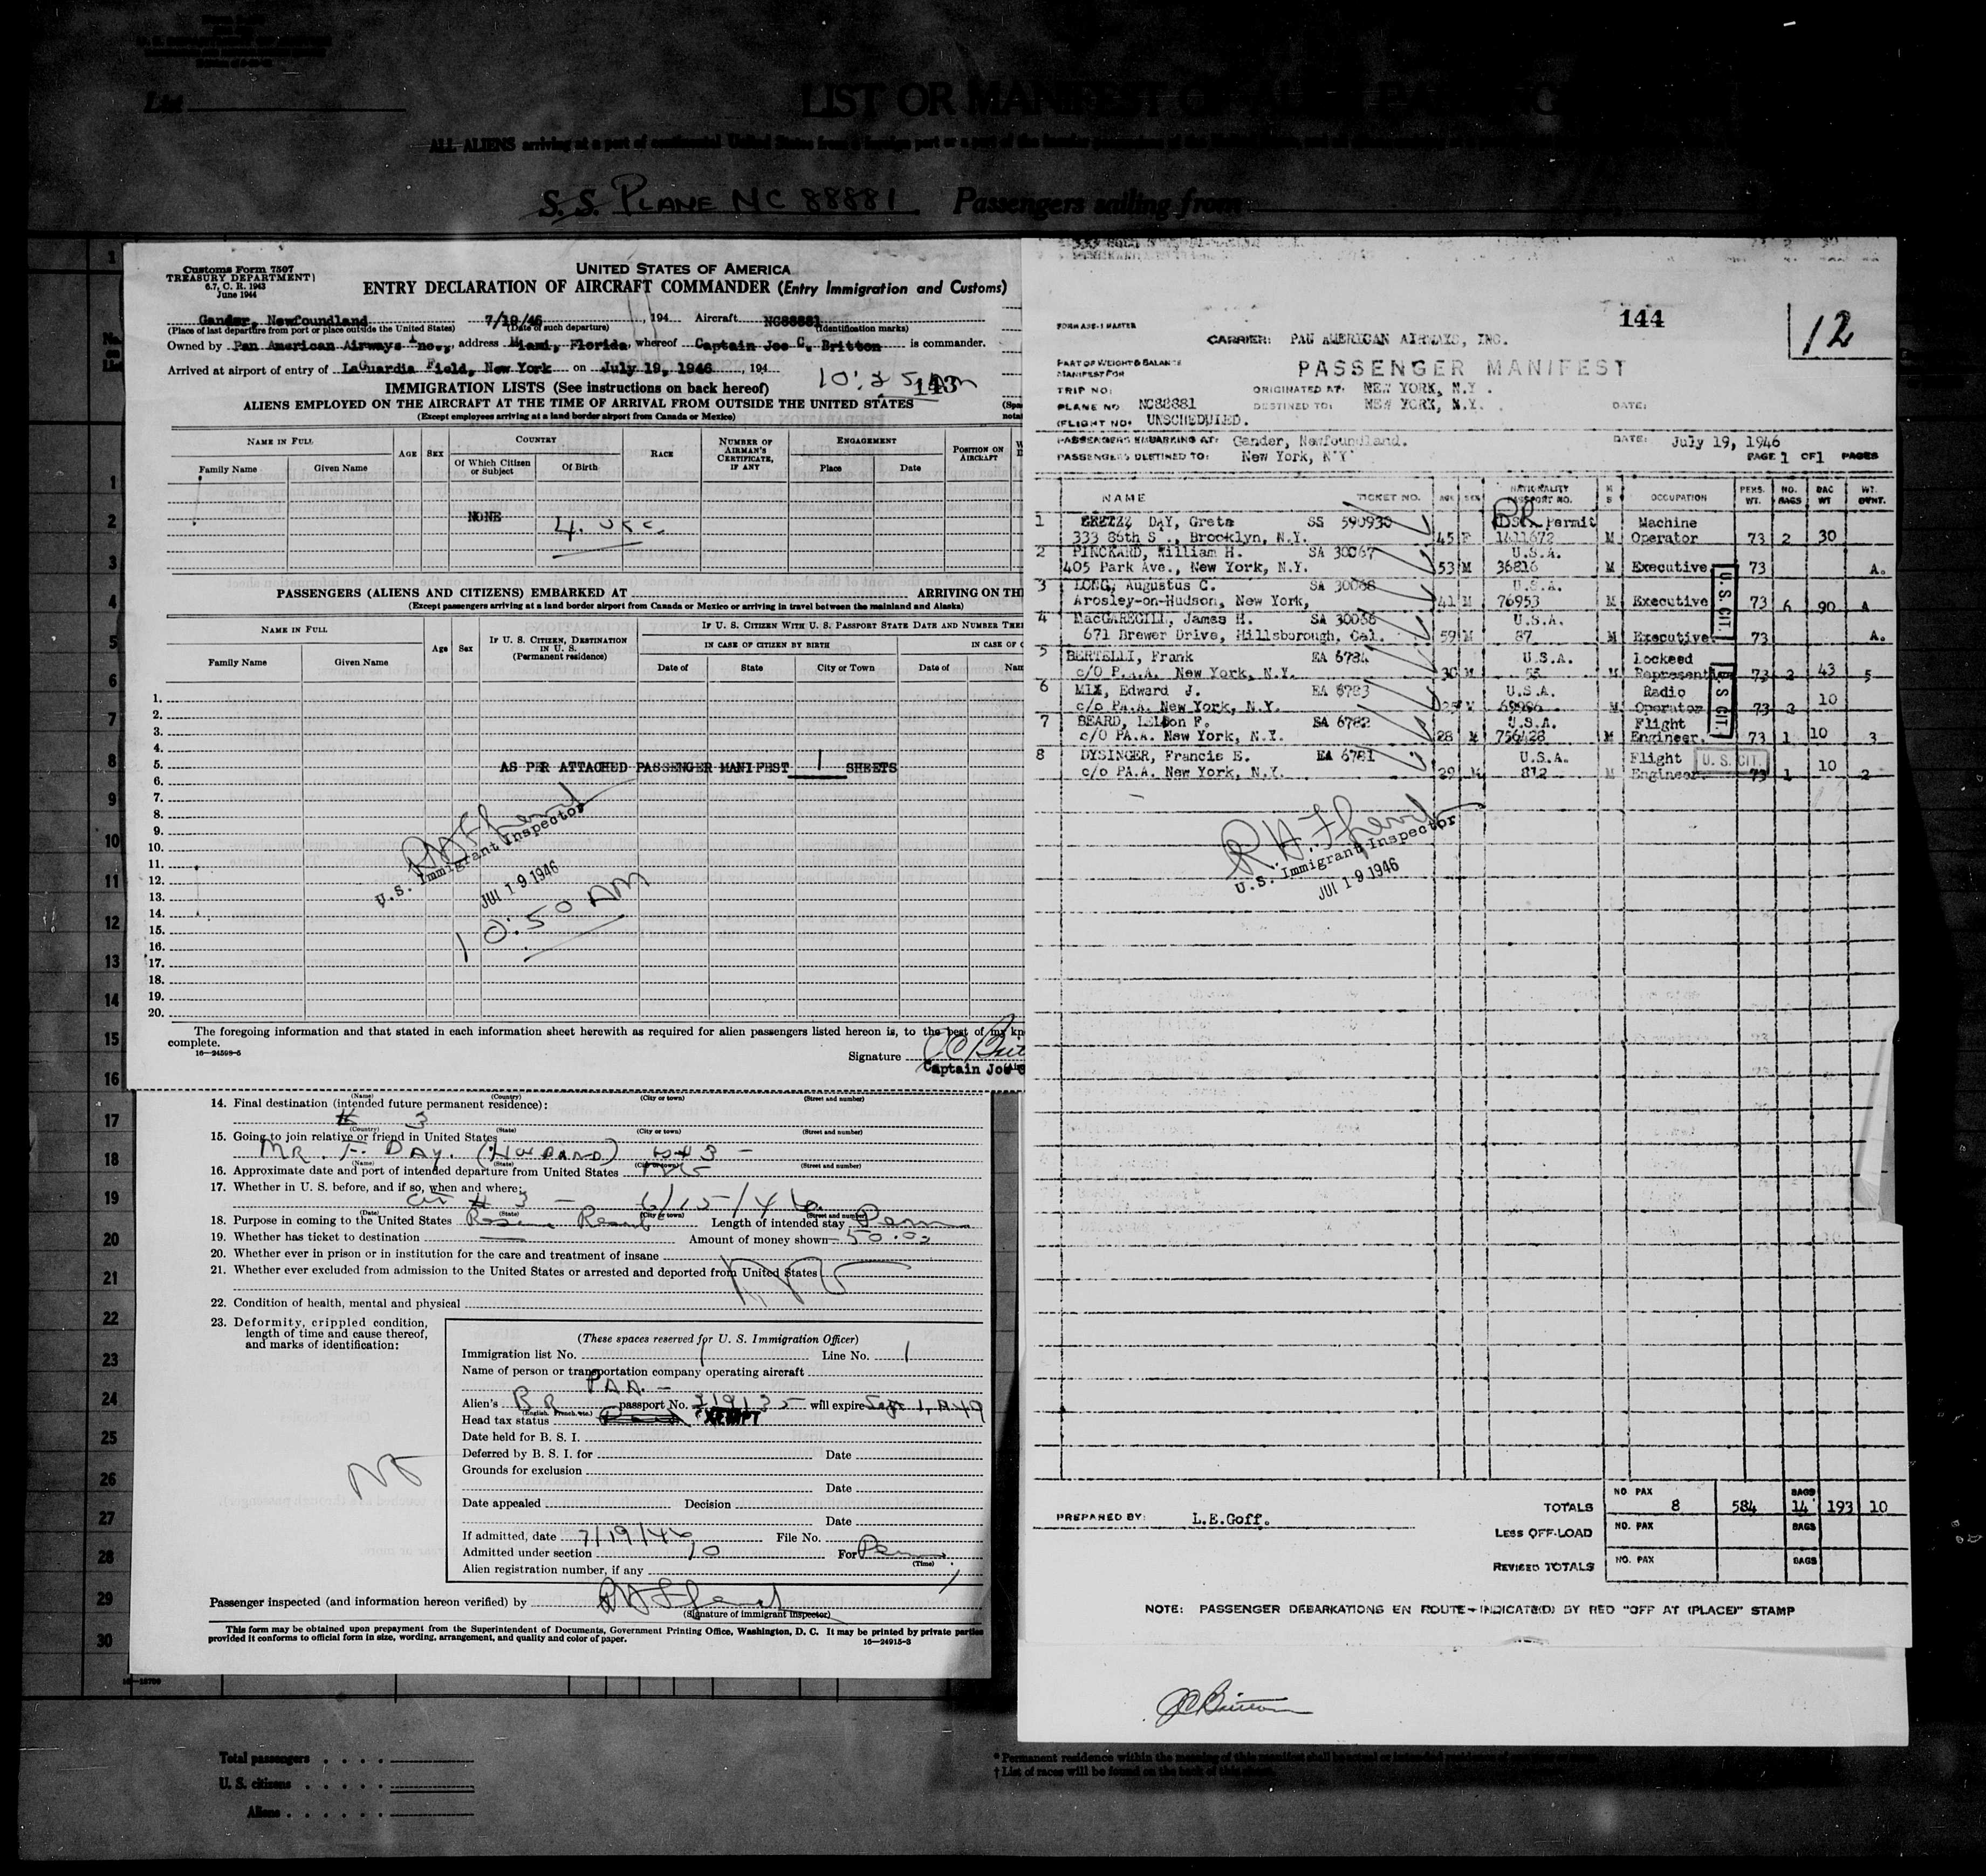 List
LIST OR MANIFEST OF ALIEN PASSENG
ALL ALIENS arriving at a port of continental United States from a foreign port or a port of the insular possessions of the United States
S. S. PLANE NC 88881 Passengers sailing from
Customs Form 7507
TREASURY DEPARTMENT
6.7, C. R. 1943
June 1944
UNITED STATES OF AMERICA
ENTRY DECLARATION OF AIRCRAFT COMMANDER (Entry Immigration and Customs)
Gander, Newfoundland 7/19/46, 194 Aircraft NC88881
(Place of last departure from port or place outside the United States) (Date of such departure) (Identification marks)
Owned by Pan American Airways Inc., address Miami, Florida, whereof Captain Joe C. Britton is commander.
Arrived at airport of entry of LaGuardia Field, New York on July 19, 1946, 194
10:25 AM
143
IMMIGRATION LISTS (See instructions on back hereof)
ALIENS EMPLOYED ON THE AIRCRAFT AT THE TIME OF ARRIVAL FROM OUTSIDE THE UNITED STATES
(Except employees arriving at a land border airport from Canada or Mexico)
NAME IN FULL AGE SEX COUNTRY RACE NUMBER OF AIRMAN'S CERTIFICATE, IF ANY ENGAGEMENT POSITION ON AIRCRAFT
Family Name Given Name Of Which Citizen or Subject Of Birth Place Date
NONE 4. USC
PASSENGERS (ALIENS AND CITIZENS) EMBARKED AT ARRIVING ON TH
(Except passengers arriving at a land border airport from Canada or Mexico or arriving in travel between the mainland and Alaska)
NAME IN FULL Age Sex IF U. S. CITIZEN, DESTINATION IN U. S. (Permanent residence) IF U. S. CITIZEN WITH U. S. PASSPORT STATE DATE AND NUMBER THE
IN CASE OF CITIZEN BY BIRTH IN CASE OF C
Family Name Given Name Date of State City or Town Date of Nam
1.
2.
3.
4.
5. AS PER ATTACHED PASSENGER MANIFEST 1 SHEETS
6.
7.
8.
9.
10.
11.
12.
13.
14.
15.
16.
17.
18.
19.
20.
U.S. Immigrant Inspector
JUL 19 1946
10:50 AM
The foregoing information and that stated in each information sheet herewith as required for alien passengers listed hereon is, to the best of my kn
complete.
16—24598-5
Signature
Captain Joe C
14. Final destination (intended future permanent residence):
(Name) (Country) (City or town) (Street and number)
# 3
(Country) (State) (City or town) (Street and number)
15. Going to join relative or friend in United States
MR. F. DAY. (HUSBAND) # 3 -
(Name) (State) (City or town) (Street and number)
16. Approximate date and port of intended departure from United States
17. Whether in U. S. before, and if so, when and where:
# 3 - 6/15/46
(Date) (State) (City or town) (Street and number)
18. Purpose in coming to the United States Length of intended stay Perm
19. Whether has ticket to destination Amount of money shown 50.00
20. Whether ever in prison or in institution for the care and treatment of insane
21. Whether ever excluded from admission to the United States or arrested and deported from United States
22. Condition of health, mental and physical
23. Deformity, crippled condition,
length of time and cause thereof,
and marks of identification:
(These spaces reserved for U. S. Immigration Officer)
Immigration list No. 1 Line No. 1
Name of person or transportation company operating aircraft
PAA. -
Alien's BR passport No. 319135 will expire Sept 1, 1949
(English, French, etc.)
Head tax status EXEMPT
Date held for B. S. I.
Deferred by B. S. I. for Date
Grounds for exclusion
Date
Date appealed Decision
Date
If admitted, date 7/19/46 File No.
Admitted under section 10 For Perm
(Time)
Alien registration number, if any
Passenger inspected (and information hereon verified) by
(Signature of immigrant inspector)
This form may be obtained upon prepayment from the Superintendent of Documents, Government Printing Office, Washington, D. C. It may be printed by private parties
provided it conforms to official form in size, wording, arrangement, and quality and color of paper.
16—24915-3
144
12
CARRIER: PAN AMERICAN AIRWAYS, INC.
PART OF WEIGHT & BALANCE
MANIFEST FOR
PASSENGER MANIFEST
TRIP NO: ORIGINATED AT: NEW YORK, N.Y.
PLANE NO. NC88881 DESTINED TO: NEW YORK, N.Y. DATE:
FLIGHT NO: UNSCHEDULED.
PASSENGERS EMBARKING AT: Gander, Newfoundland. DATE: July 19, 1946
PASSENGERS DESTINED TO: New York, N.Y. PAGE 1 OF 1 PAGES
NAME TICKET NO. AGE SEX NATIONALITY PASSPORT NO. M S OCCUPATION PERS. WT. NO. BAGS BAG WT WT. OVHT.
1 DAY, Greta SS 590930 Permit Machine
333 86th S., Brooklyn, N.Y. 45 F 1411672 M Operator 73 2 30
2 PINCKARD, William H. SA 30067 U.S.A.
405 Park Ave., New York, N.Y. 53 M 36816 M Executive 73 A.
3 LONG, Augustus C. SA 30068 U.S.A.
Arosley-on-Hudson, New York, 41 M 76953 M Executive 73 6 90 A
4 MacGAREGILL, James H. SA 30056 U.S.A.
671 Brewer Drive, Hillsborough, Cal. 59 M 87 M Executive 73 A.
5 BERTELLI, Frank EA 6784 U.S.A. Lockeed
c/o P.A.A. New York, N.Y. 30 M 55 M Representative 73 2 43 5
6 MIX, Edward J. EA 6783 U.S.A. Radio
c/o PA.A. New York, N.Y. 25 M 69996 M Operator 73 2 10
7 BEARD, Leldon F. SA 6782 U.S.A. Flight
c/O PA.A. New York, N.Y. 28 M 756428 M Engineer. 73 1 10 3
8 DYSINGER, Francis E. EA 6781 U.S.A. Flight
c/o PA.A. New York, N.Y. 29 M 812 M Engineer 73 1 10 2
U.S. CIT.
U.S. CIT.
U. S. CIT.
U.S. Immigrant Inspector
JUL 19 1946
PREPARED BY: L.E.Goff.
TOTALS NO. PAX 8 584 BAGS 14 193 10
LESS OFF-LOAD NO. PAX BAGS
REVISED TOTALS NO. PAX BAGS
NOTE: PASSENGER DEBARKATIONS EN ROUTE-INDICATE(D) BY RED "OFF AT (PLACE)" STAMP
JC Britton
Total passengers
U. S. citizens
Aliens
* Permanent residence within the meaning of this manifest shall be actual or intended residence of
† List of races will be found on the back of this sheet.
1
2
3
4
5
6
7
8
9
10
11
12
13
14
15
16
17
18
19
20
21
22
23
24
25
26
27
28
29
30